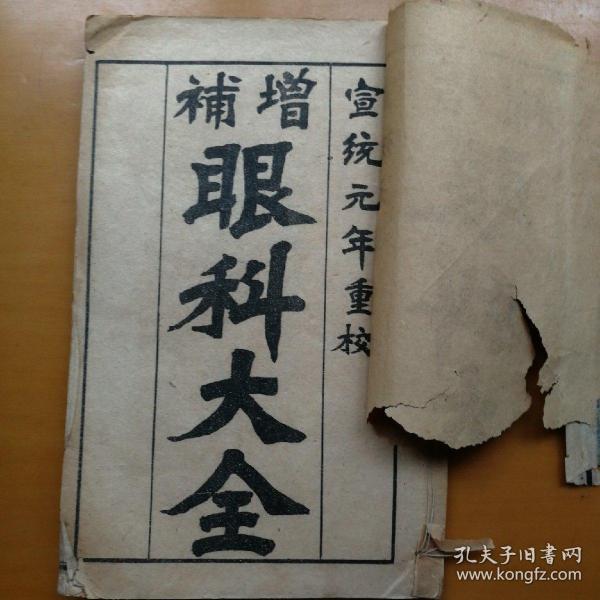 宣统元年重校
增補
眼科大全
孔夫子旧書网
www.kongfz.com